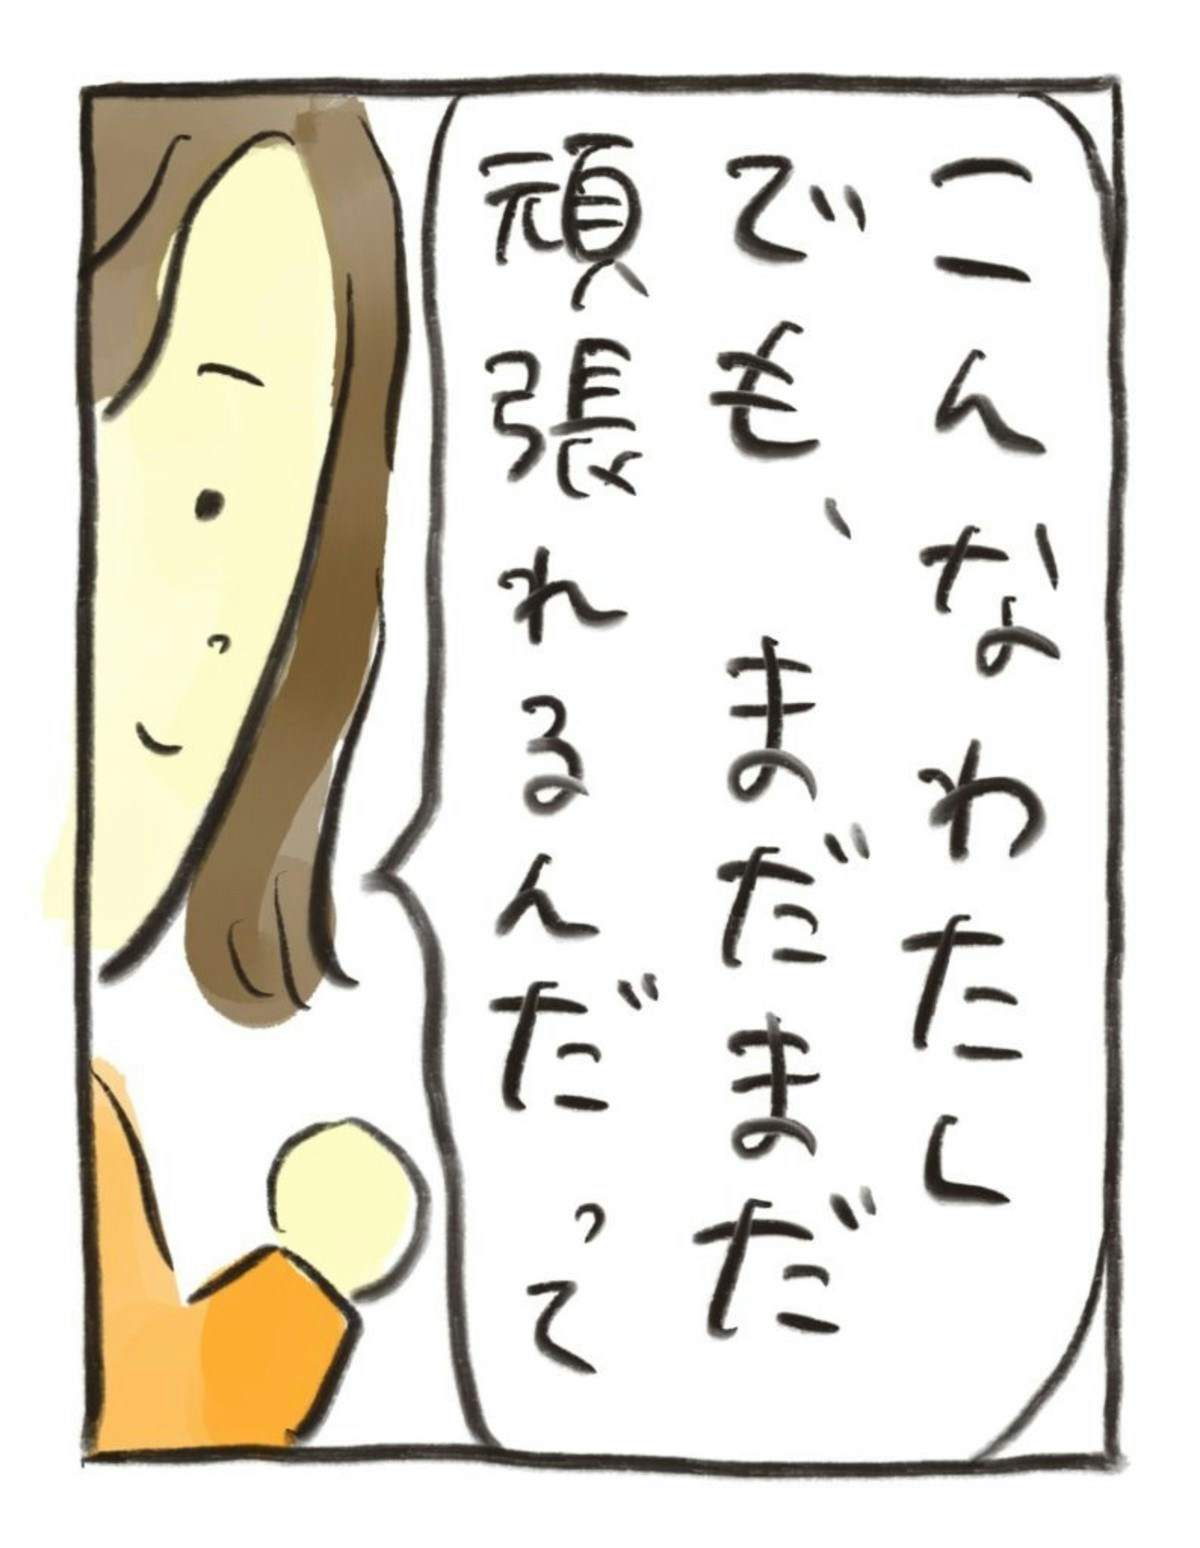 こんなわたし
でも、まだまだ
頑張れるんだって